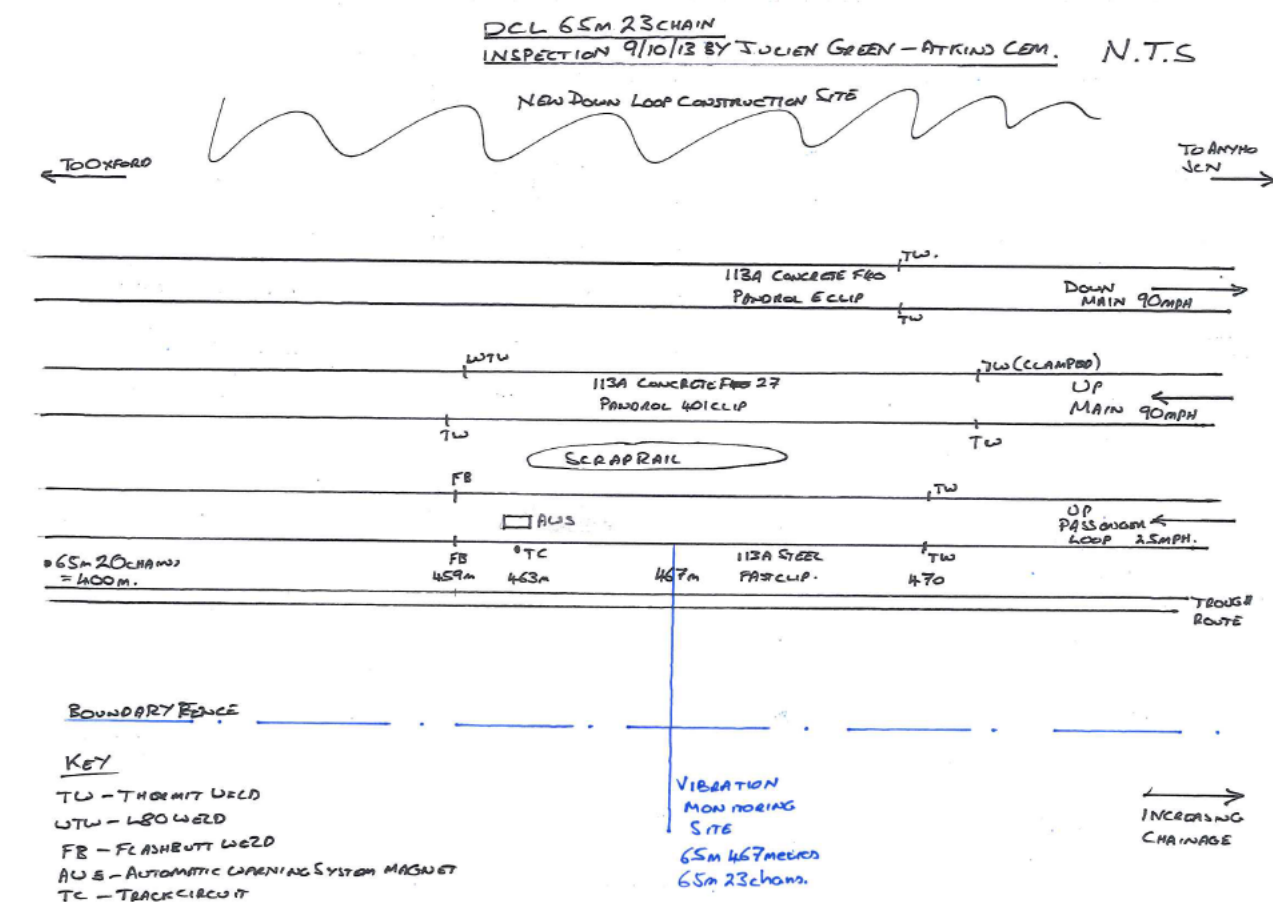 DCL 65m 23CHAIN
INSPECTION 9/10/13 BY JULIEN GREEN - ATKINS CEM.
N.T.S
NEW DOWN LOOP CONSTRUCTION SITE
TO OXFORD
TO AYNHO
JCN
TW.
113A CONCRETE F40
PANDROL E CLIP
DOWN
MAIN 90MPH
TW
WTW
TW (CLAMPED)
113A CONCRETE 27
PANDROL 401 CLIP
UP
MAIN 90MPH
TW
TW
SCRAP RAIL
FB
TW
AWS
UP
PASSENGER
LOOP 25MPH.
65m 20CHAINS
= 400m.
FB
459m
TC
463m
467m
113A STEEL
FASTCLIP.
TW
470
TROUGH
ROUTE
BOUNDARY FENCE
KEY
TW - THERMIT WELD
WTW - L80 WELD
FB - FLASHBUTT WELD
AWS - AUTOMATIC WARNING SYSTEM MAGNET
TC - TRACK CIRCUIT
VIBRATION
MONITORING
SITE
65m 467metres
65m 23chains.
INCREASING
CHAINAGE